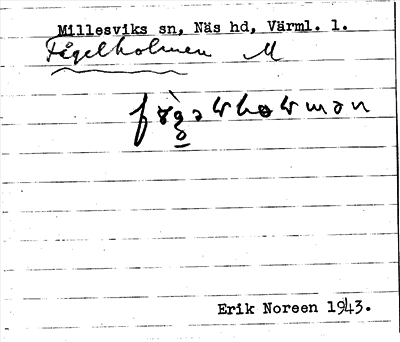 Millesviks sn, Näs hd, Värml. l.
Fågelholmen M
Erik Noreen 1943.